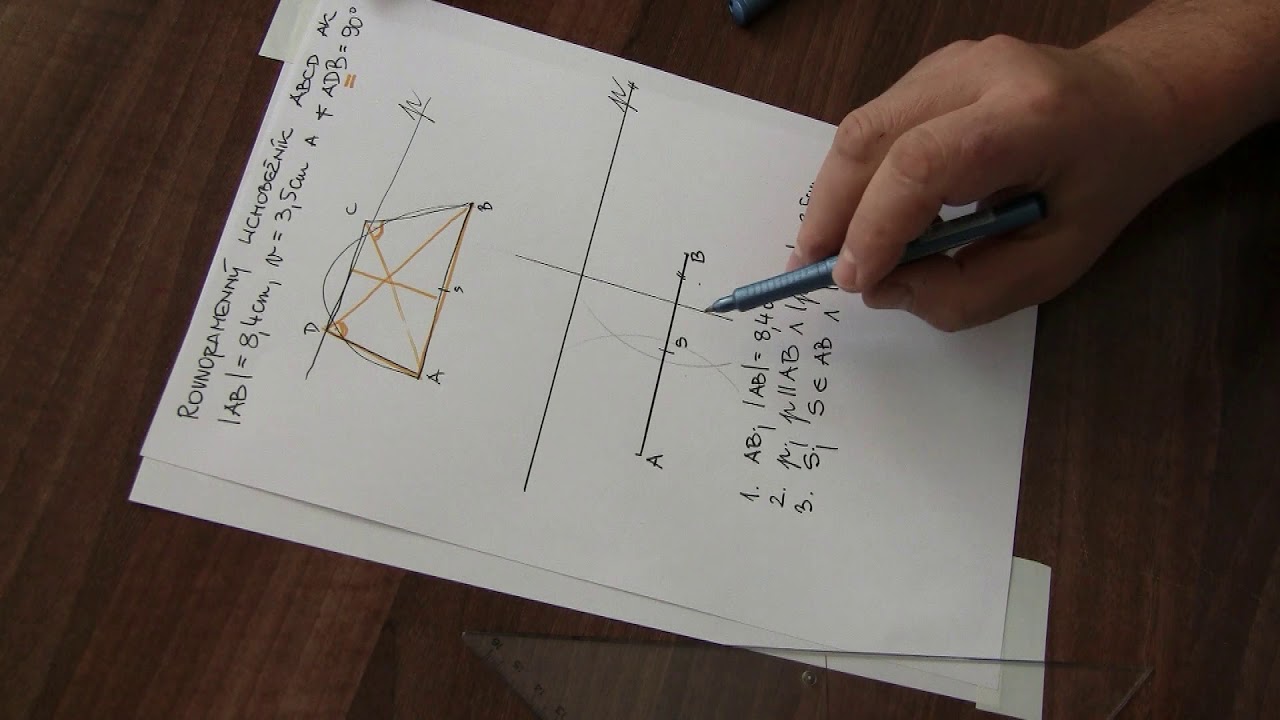 ROVNORAMENNÝ LICHOBEŽNÍK ABCD AK
|AB| = 8,4cm, v = 3,5cm A ∢ ADB = 90°
D
C
A
S
B
p
p
A
S
B
1. AB; |AB| = 8,4
2. p; p || AB ∧
3. S; S ∈ AB ∧